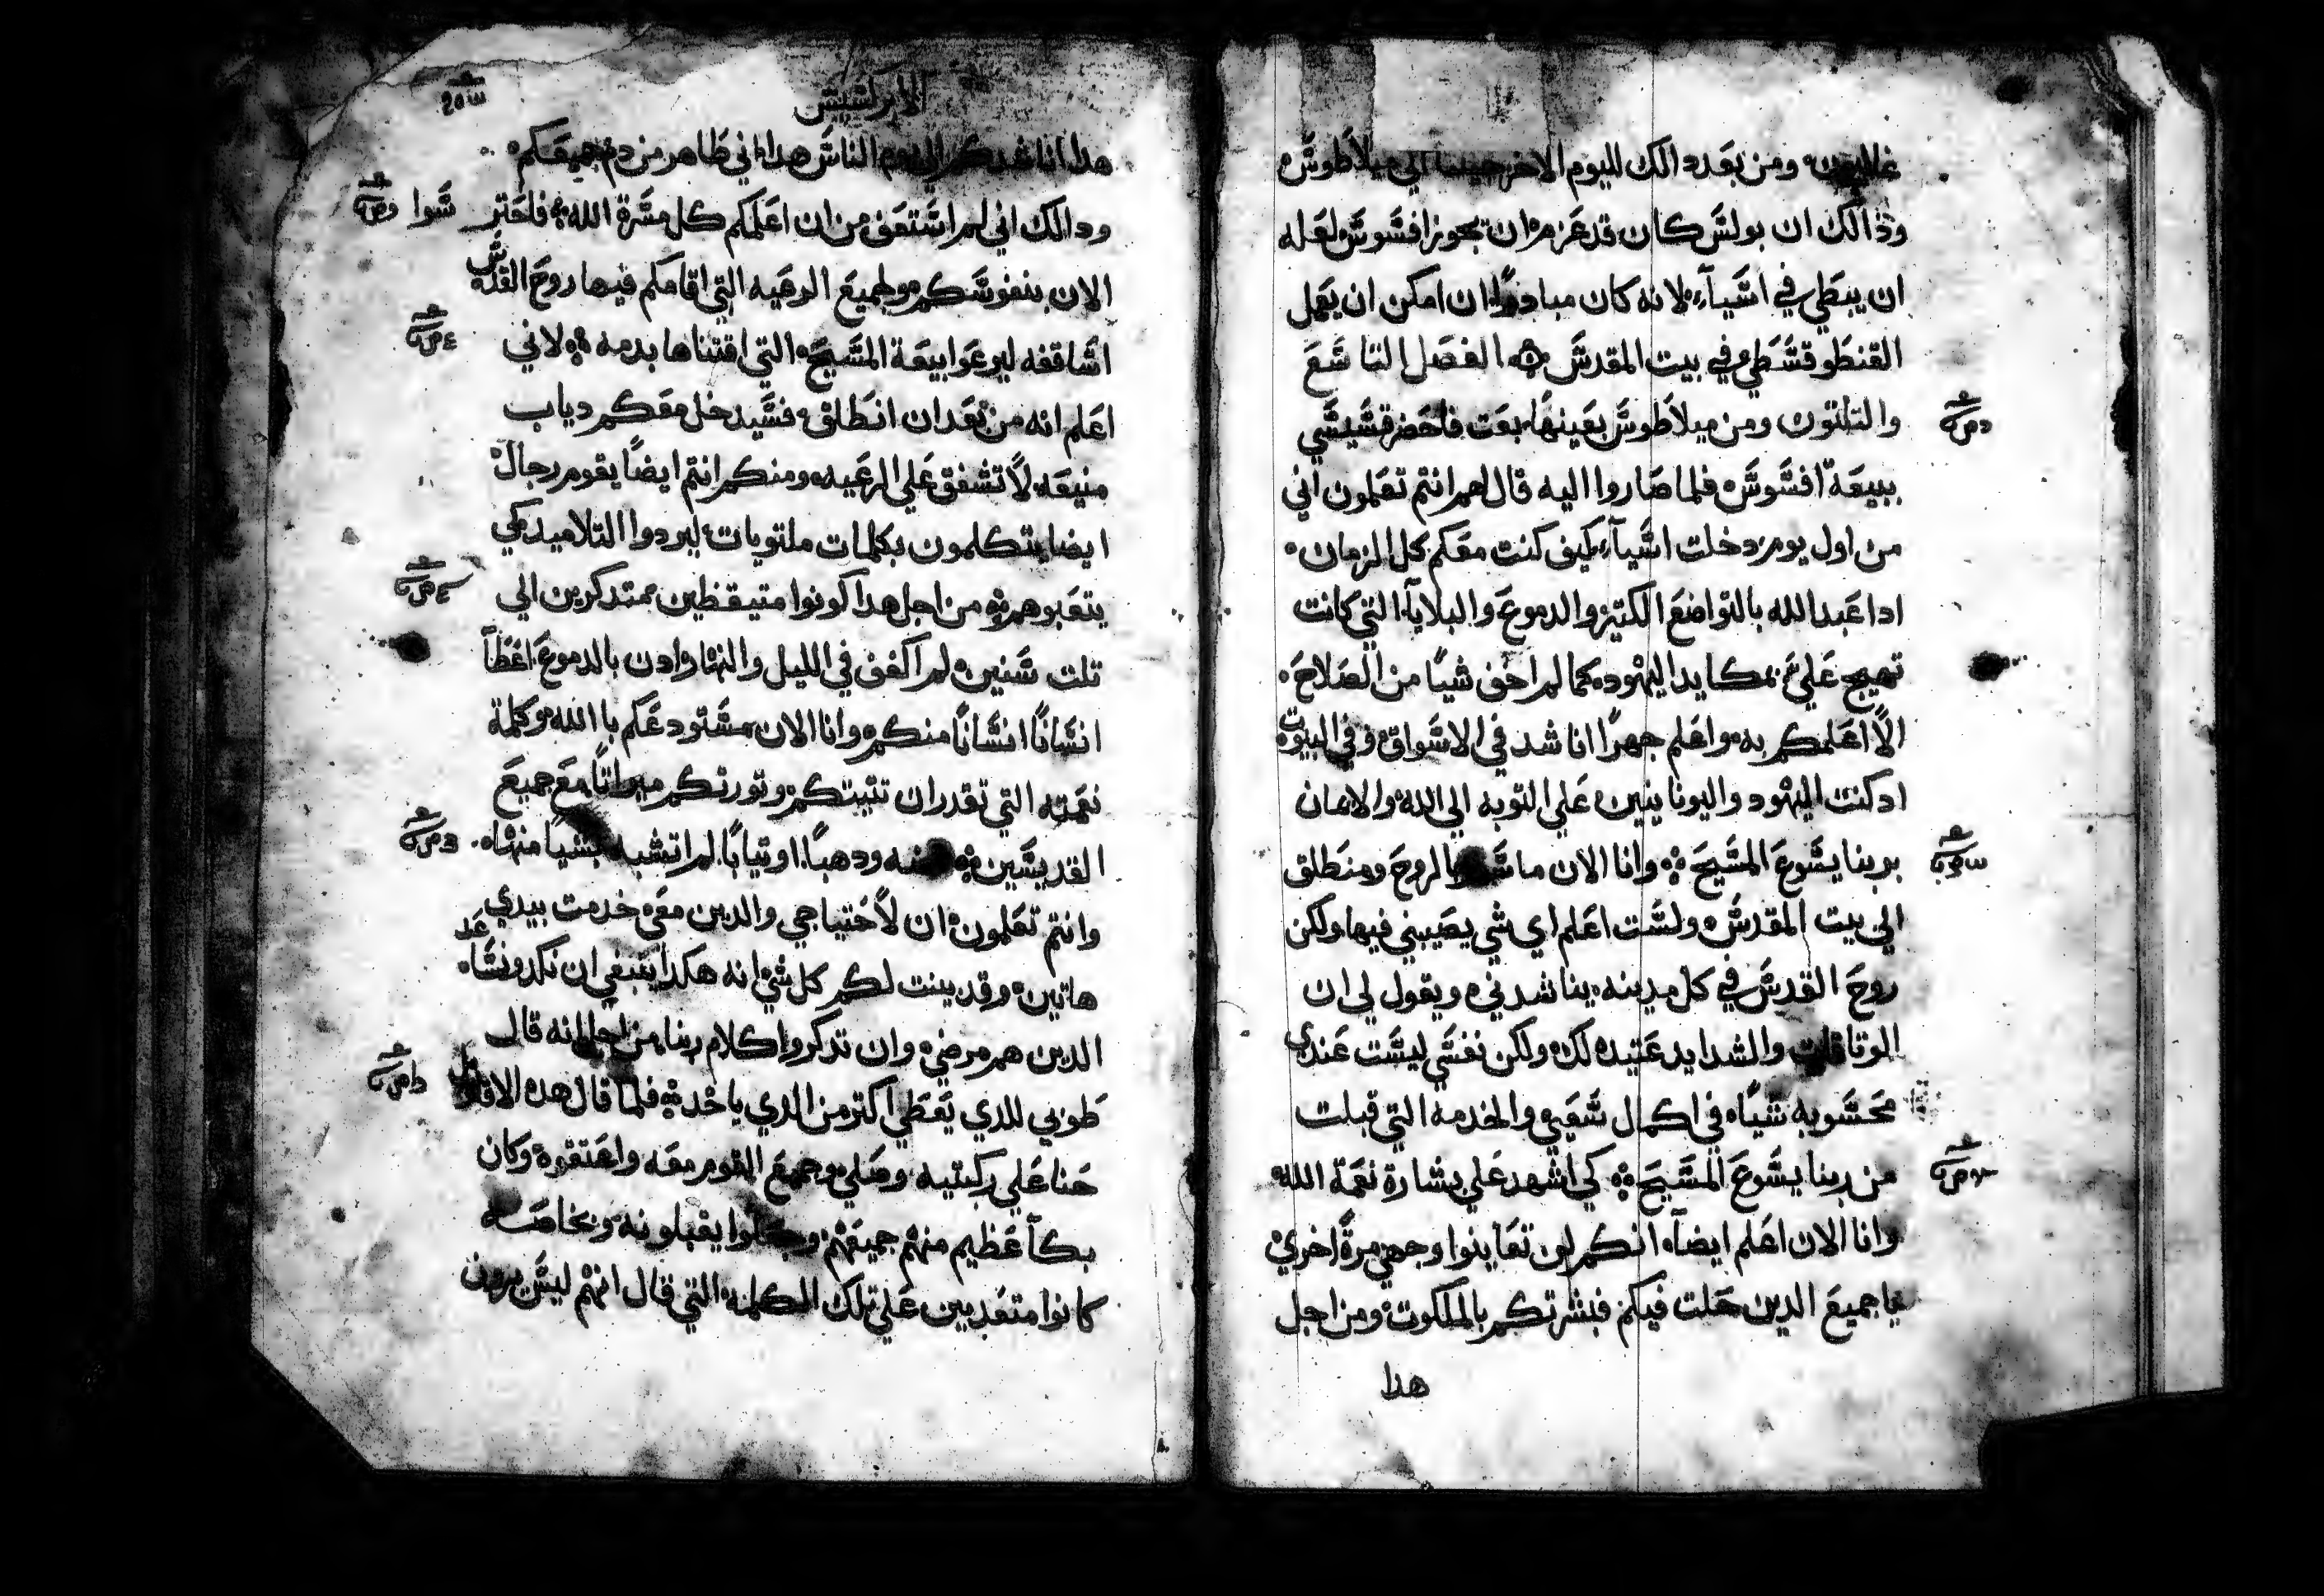 ومن بعد دالك لليوم الاخر جينا الي ميلاطوش
وذالك ان بولش كان قد عزم ان يجوز افشوش لعله
ان يبطي في اشيآء لانه كان مبادرًا ان امكن ان يعمل
القنطوقشطي في بيت المقدش الفصل التاشع
والتلتون ومن ميلاطوش بعينها بعت فاحضر قشيشي
بيعة افشوش فلما صاروا اليه قال لهم انتم تعلمون اني
من اول يوم دخلت اشيآء كيف كنت معكم كل الزمان
ادا عبد الله بالتواضع الكتير والدموع والبلايآ التي كانت
تهيج علي بمكايد اليهود كما لم اخف شيًا من الصلاح
الا اعلمكم به واعلم جهرًا اناشد في الاشواق وفي البيوت
ادكنت اليهود واليونانيين علي التوبه الي الله والايمان
بربنا يشوع المشيح وانا الان بالروح ومنطلق
الي بيت المقدش ولشت اعلم اي شي يصيبني فيها ولكن
روح القدش في كل مدينه يناشدني ويقول لي ان
الوتاقات والشدايد عتيده لك ولكن نفشي ليشت عندي
محشوبه شيًا في اكمال شعيي والخدمه التي قبلت
من ربنا يشوع المشيح كي اشهد علي بشارة نعمة الله
وانا الان اعلم ايضآ انكم لن تعاينوا وجهي مرةً اخري
ياجميع الدين حلت فيكم فبشرتكم بالملكوت ومن اجل
هدا
الابركشيش
هدا اناشدكم الي يوم الناش هدا اني طاهر من دم جميعكم
ودالك اني لم اشتعف من ان اعلمكم كل مشرة الله فاحترشوا
الان بنفوشكم ولجميع الرعيه التي اقامكم فيها روح القدش
اشاقفه ليرعوا بيعة المشيح التي اقتناها بدمه لاني
اعلم انه من بعد ان انطلق فشيدخل معكم دياب
منيعه لا تشفق علي الرعيه ومنكم انتم ايضًا يقوم رجال
ايضا يتكلمون بكلمات ملتويات ليردوا التلاميد كي
يتعبوهم من اجل هدا كونوا متيقظين متدكرين الي
تلت شنين لم اكفف في الليل والنهار ادن بالدموع اعظآ
انشانًا انشانًا منكم وانا الان مشتودعكم با الله وكلمة
نعمته التي تقدر ان تتبتكم وتورتكم ميراتًا مع جميع
القديشين ودهبًا اوتيابًا لم اتشبه بشيا منها
وانتم تعلمون ان لاحتياجي والدين معي خدمت بيدي
هاتين وقد بينت لكم كل شي انه هكدا ينبغي ان نكد ونشاعد
الدين هم مرضي وان تدكروا كلام ربنا من اجل انه قال
طوبي للدي يعطي اكتر من الدي ياخد فلما قال هده الاقاويل
حنا علي ركبتيه وصلي وجميع القوم معه واعتنقوه وكان
بكآ عظيم منهم جميعهم وجعلوا يقبلونه وبخاصه
كانوا متعدبين علي تلك الكلمه التي قال انهم ليش يرون